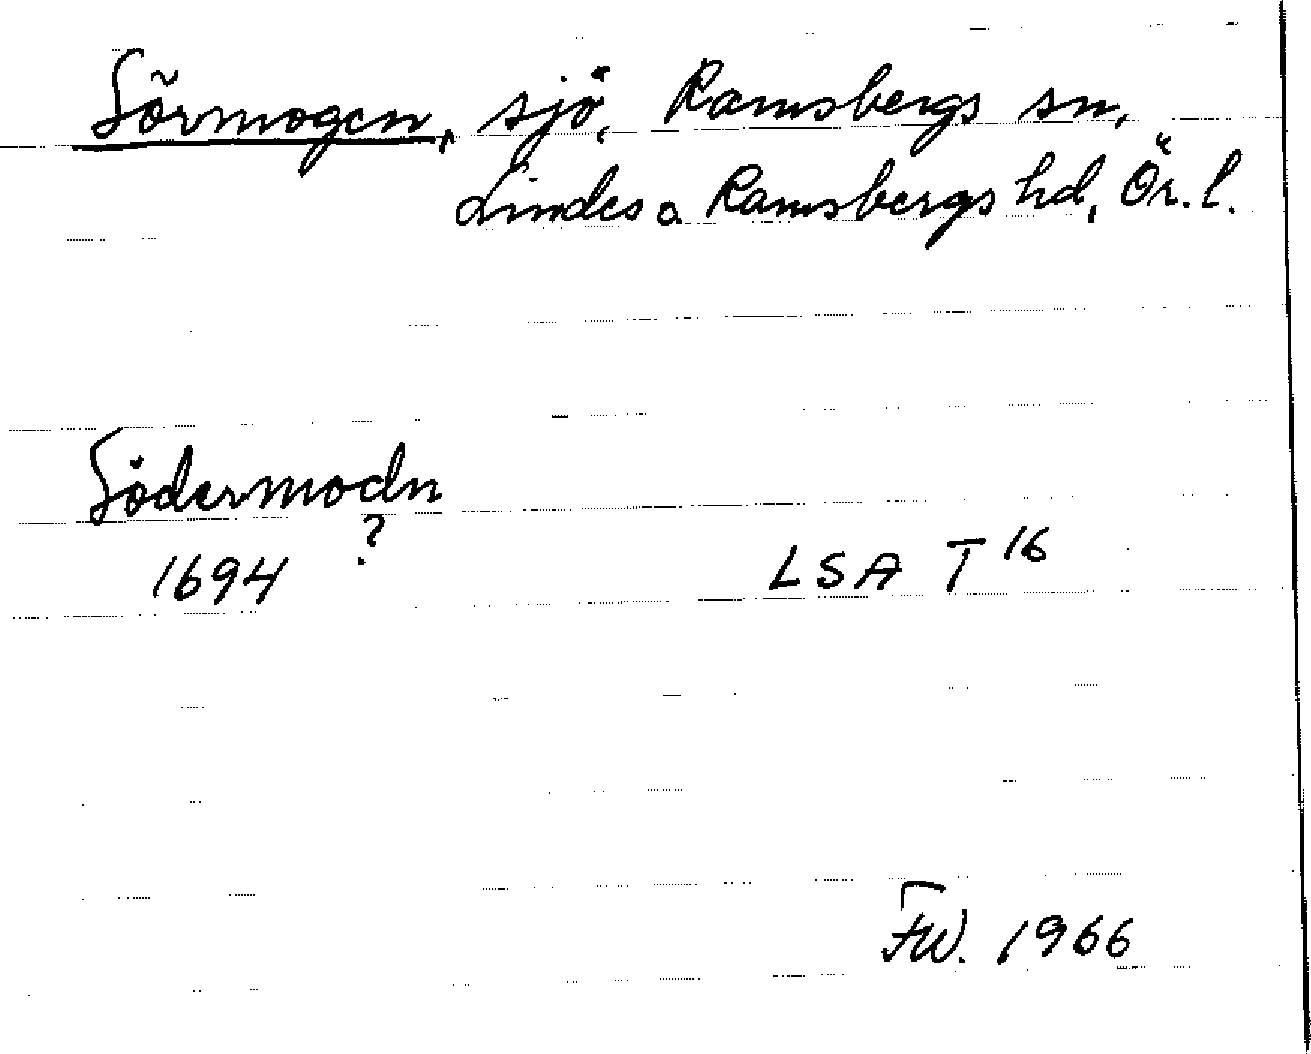 Sörmogen, sjö, Ramsbergs sn,
Lindes o Ramsbergs hd, Ör. l.
Södermodn
?
1694 LSA T 16
FW. 1966